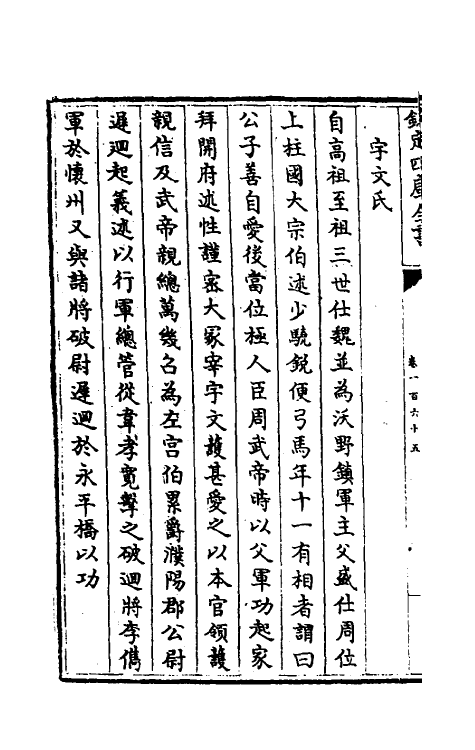 欽定四庫全書
卷一百六十五
字文氏
自高祖至祖三世仕魏並為沃野鎮軍主父盛仕周位
上柱國大宗伯述少驍銳便弓馬年十一有相者謂曰
公子善自愛後當位極人臣周武帝時以父軍功起家
拜開府述性謹宻大冢宰宇文護甚愛之以本官領護
親信及武帝親總萬幾召為左宫伯累爵濮陽郡公尉
遲迥起義述以行軍總管從韋孝寛擊之破迥將李儁
軍於懷州又與諸將破尉遲迥於永平橋以功